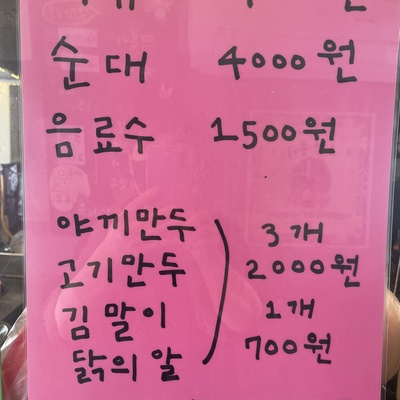 순대 4000원
음료수 1500원
야끼만두 3개
고기만두 2000원
김말이 1개
닭의알 700원